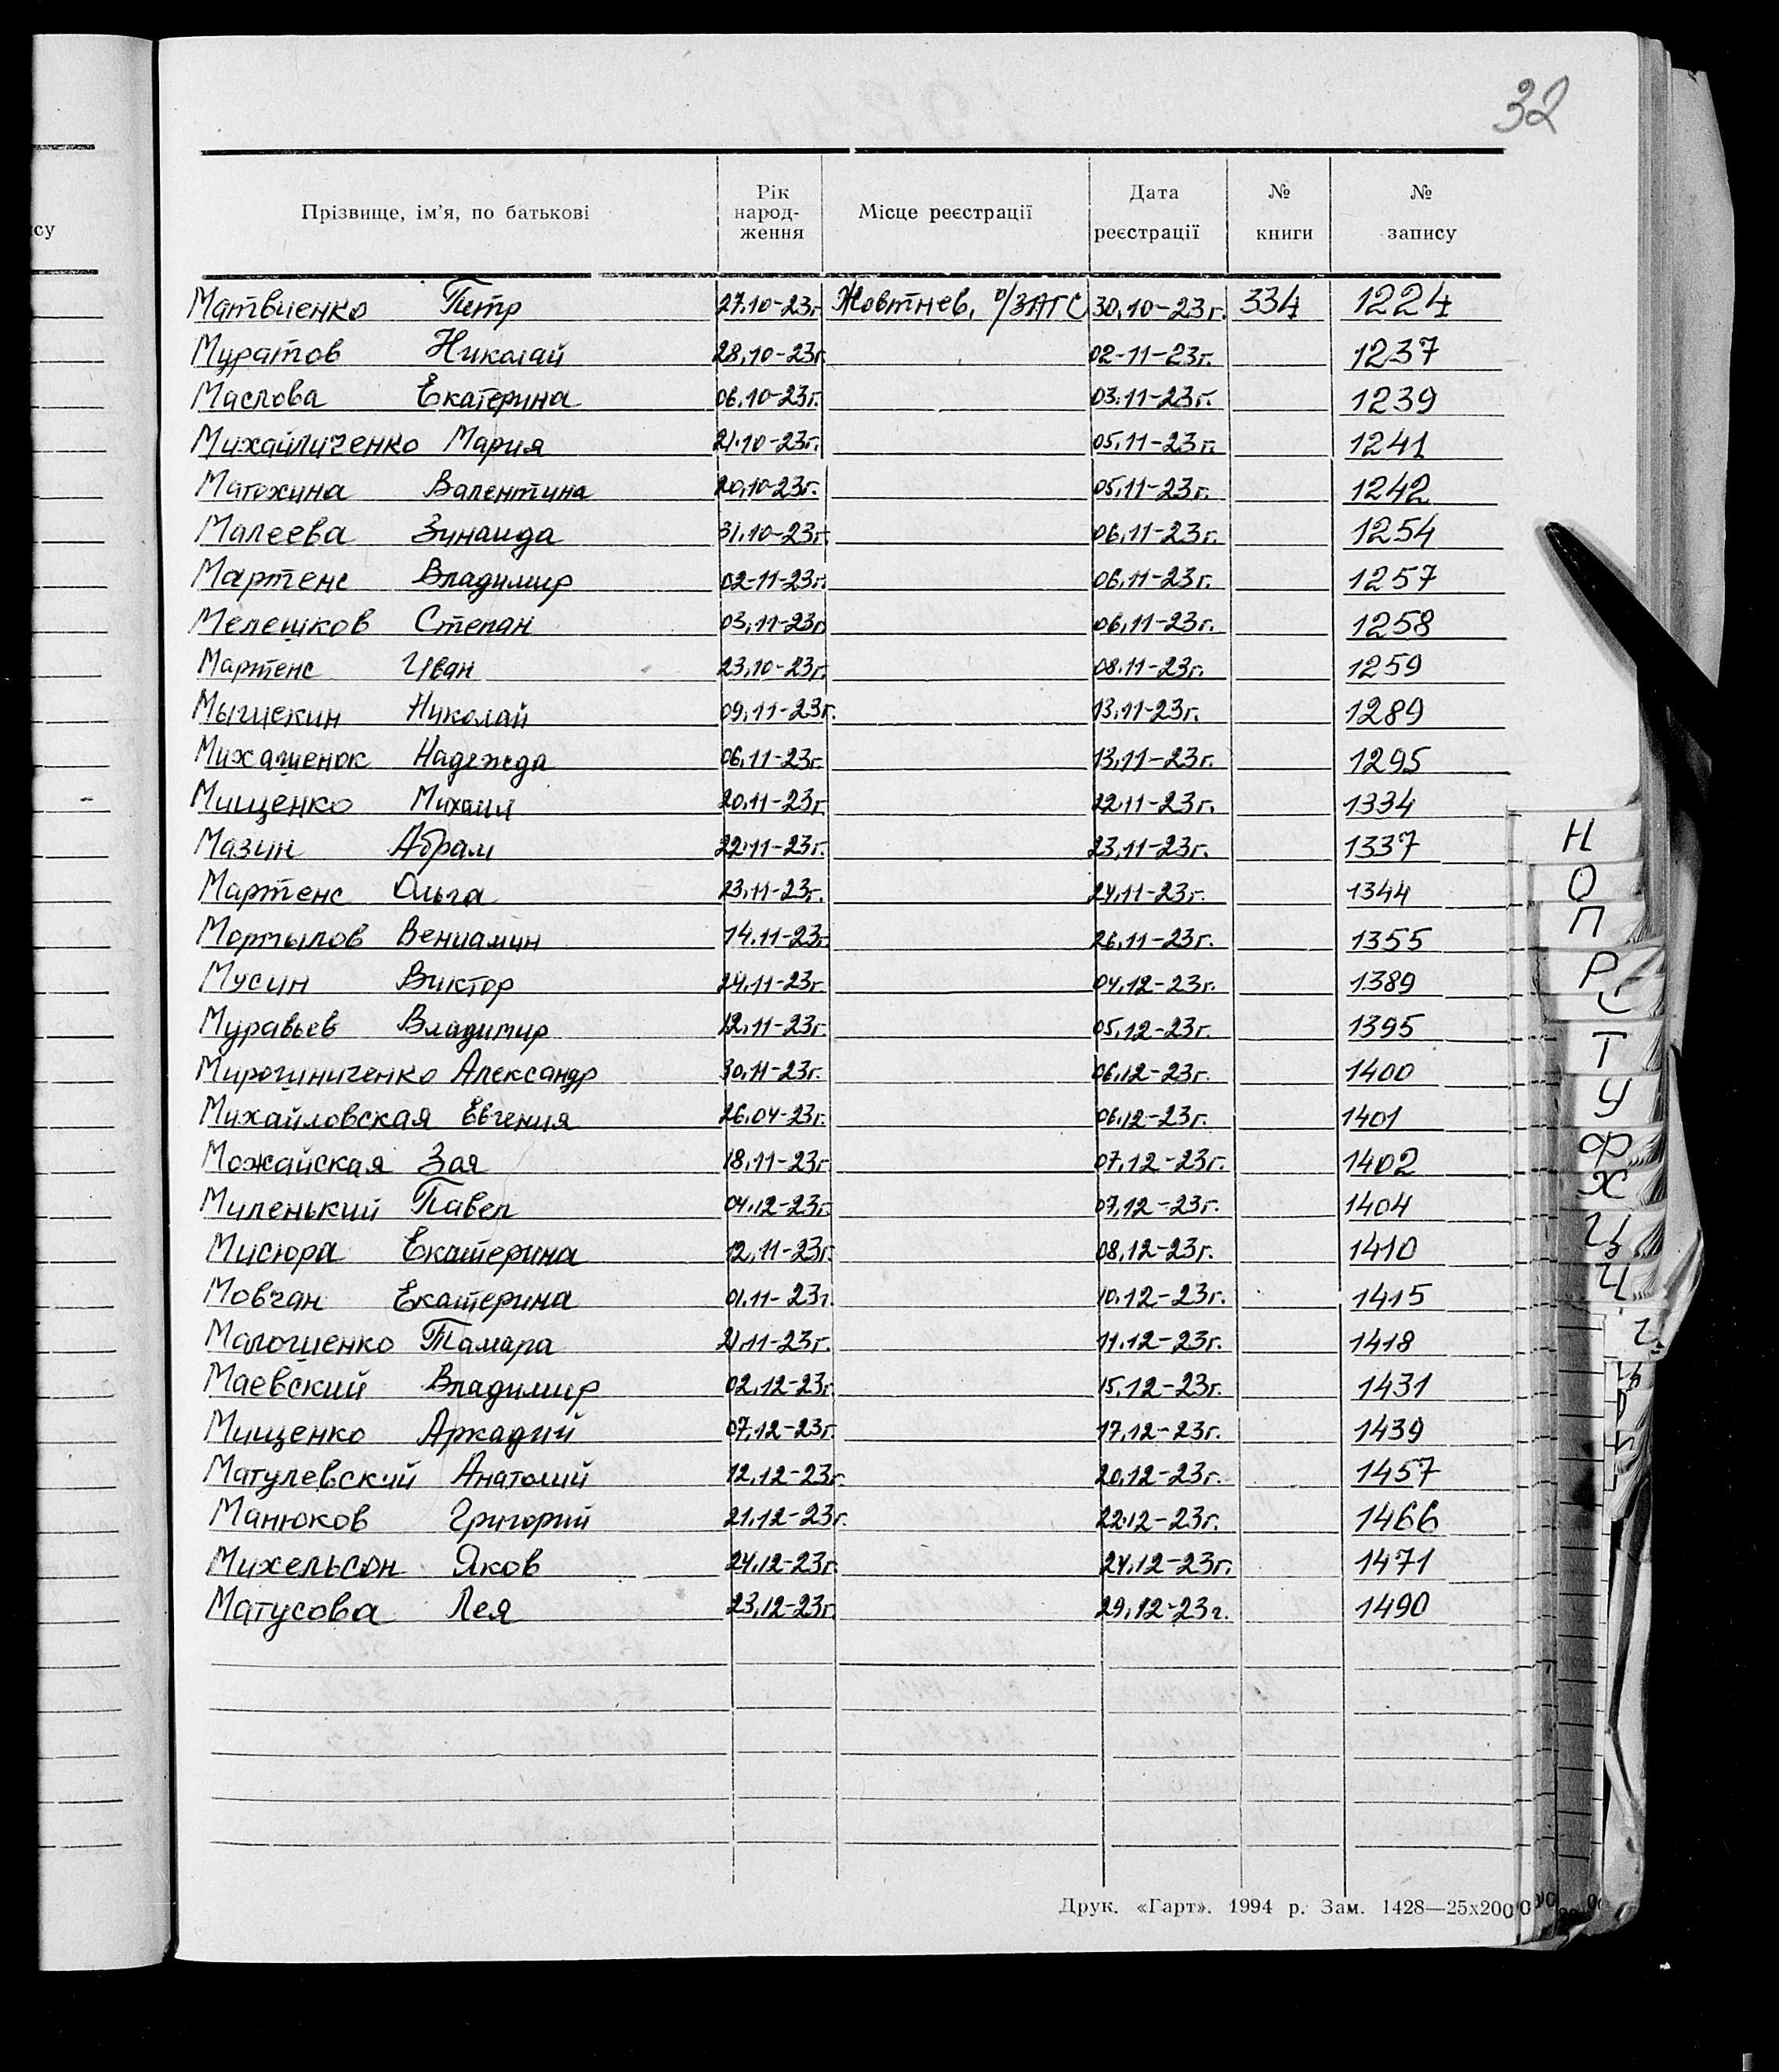 32
Прізвище, ім'я, по батькові Рік народ- ження Місце реєстрації Дата реєстрації № книги № запису
Матвиенко Петр 27.10-23г Жовтнев. о/ЗАГС 30.10-23г. 334 1224
Муратов Николай 28.10-23г. 02-11-23г. 1237
Маслова Екатерина 06.10-23г. 03.11-23г. 1239
Михайличенко Мария 21.10-23г. 05.11-23г. 1241
Валентина 20.10-23г. 05.11-23г. 1242
Малеева Зинаида 31.10-23г. 06.11-23г. 1254
Мартенс Владимир 02-11-23г. 06.11-23г. 1257
Мелешков Степан 03.11-23г 06.11-23г. 1258
Мартенс Иван 23.10-23г. 08.11-23г. 1259
Николай 09.11-23г. 13.11-23г. 1289
Надежда 06.11-23г. 13.11-23г. 1295
Мищенко Михаил 20.11-23г 22.11-23г. 1334
Мазин Абрам 22.11-23г. 23.11-23г. 1337
Мартенс Ольга 23.11-23г. 24.11-23г. 1344
Мортылов Вениамин 14.11-23г 26.11-23г. 1355
Мусин Виктор 24.11-23г. 04.12-23г. 1389
Муравьев Владимир 12.11-23г. 05.12-23г. 1395
Мирошниченко Александр 30.11-23г. 06.12-23г. 1400
Михайловская Евгения 26.04-23г. 06.12-23г. 1401
Можайская Зоя 18.11-23г 07.12-23г. 1402
Миленький Павел 04.12-23г. 07.12-23г. 1404
Мисюра Екатерина 12.11-23г. 08.12-23г. 1410
Мовчан Екатерина 01.11-23г. 10.12-23г. 1415
Тамара 21.11-23г. 11.12-23г. 1418
Маевский Владимир 02.12-23г 15.12-23г. 1431
Мищенко Аркадий 07.12-23г. 17.12-23г. 1439
Матулевский Анатолий 12.12-23г. 20.12-23г. 1457
Манюков Григорий 21.12-23г. 22.12-23г. 1466
Михельсон Яков 24.12-23г. 24.12-23г. 1471
Матусова Лея 23.12-23г. 29.12-23г. 1490
Друк. «Гарт». 1994 р. Зам. 1428—25х2000
су
Н
О
П
Р
С
Т
У
Ф
Х
Ц
Ч